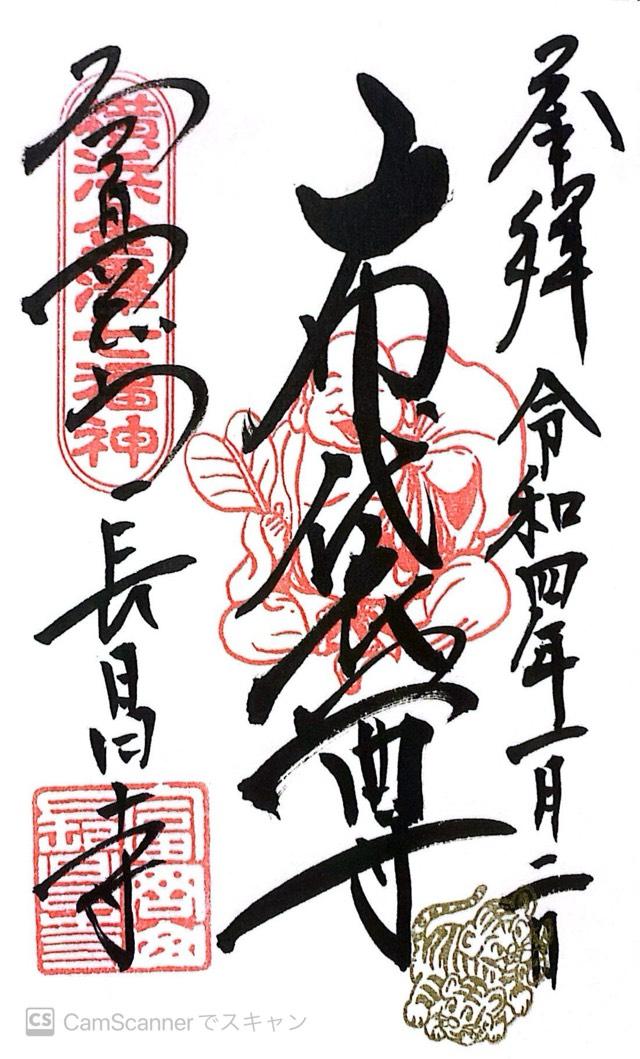 奉拝 令和四年一月二日
布袋尊
横浜金澤七福神
富岡山
長昌寺
CS CamScannerでスキャン